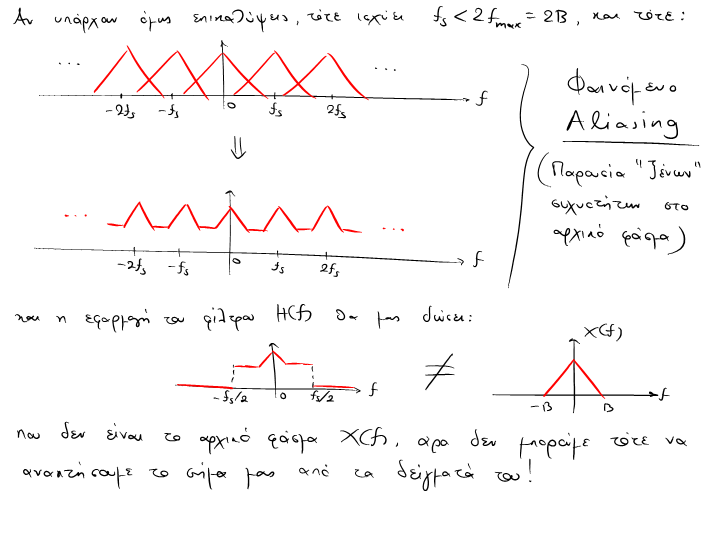 Αν υπάρχουν όμως επικαλύψεις, τότε ισχύει fs < 2fmax = 2B, και τότε:
... ...
-2fs -fs 0 fs 2fs f
Φαινόμενο
Aliasing
(Παρουσία "ξένων"
συχνοτήτων στο
αρχικό φάσμα)
⇓
... ...
-2fs -fs 0 fs 2fs f
και η εφαρμογή του φίλτρου H(f) θα μας δώσει:
-fs/2 0 fs/2 f
≠
X(f)
-B B f
που δεν είναι το αρχικό φάσμα X(f), άρα δεν μπορούμε τότε να
ανακτήσουμε το σήμα μας από τα δείγματά του!